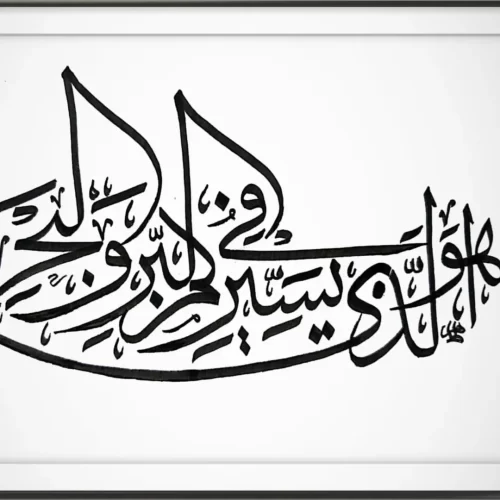 هو الذي يسيركم في البر والبحر